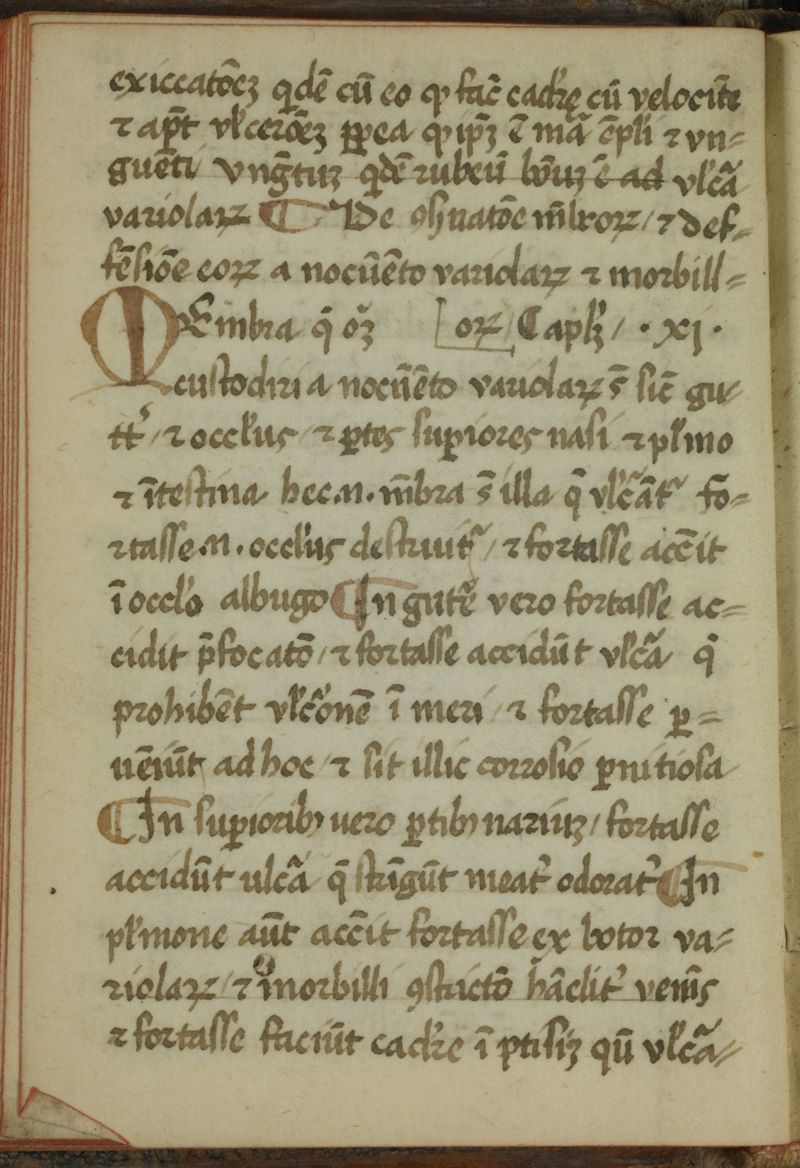 exiccatōeꝫ qdē cū eo qͥ fac̄ cadr̄e cū velocit̄e
⁊ ap̄t vl̄cerōeꝫ ꝓp̄ea qͥ ip̄ꝫ ē mā ēpli ⁊ vn=
guēti vnḡtuꝫ qdē rubeū bōuꝫ ē ad vl̄cā
variolaꝝ ¶ De ꝯsͥuatōe m̄broꝝ / ⁊ def=
fēsiōe eoꝝ a nocūēto variolaꝝ ⁊ morbill=
MEmbra q̄ oꝫ [oꝝ / Capl̄ꝫ / · xj ·
custodiri a nocūēto variolaꝝ s̄ sic̄ gu=
tt̉ / ⁊ occl̄us / ⁊ ꝑtes suꝑiores nasi ⁊ pl̄mo
⁊ ītestina hec .n. m̄bra s̄ illa q̄ vl̄cānt̉ fo=
rtasse .n. occl̄us destruit̉ / ⁊ fortasse acc̄it
ī occl̄o albugo ¶ In gutt̉e vero fortasse ac=
cidit p̄focatō / ⁊ fortasse accidūt vl̄cā q̄
prohibēt vl̄cōnē ī meri / ⁊ fortasse ꝑ=
uēiūt ad hoc ⁊ sit illic corrosio ꝑnitiosa
¶ In suꝑiorib᷒ vero ꝑtib᷒ nariuꝫ / fortasse
accidūt ulcā q̄ strīgūt meat᷒ odorat᷒ ¶ In
pl̄mone aūt acc̄it fortasse ex botor va=
riolaꝝ / ⁊ morbilli ꝯstrictō hāelit᷒ veniēs
⁊ fortasse faciūt cadr̄e ī ptisiꝫ qū vl̄cā=